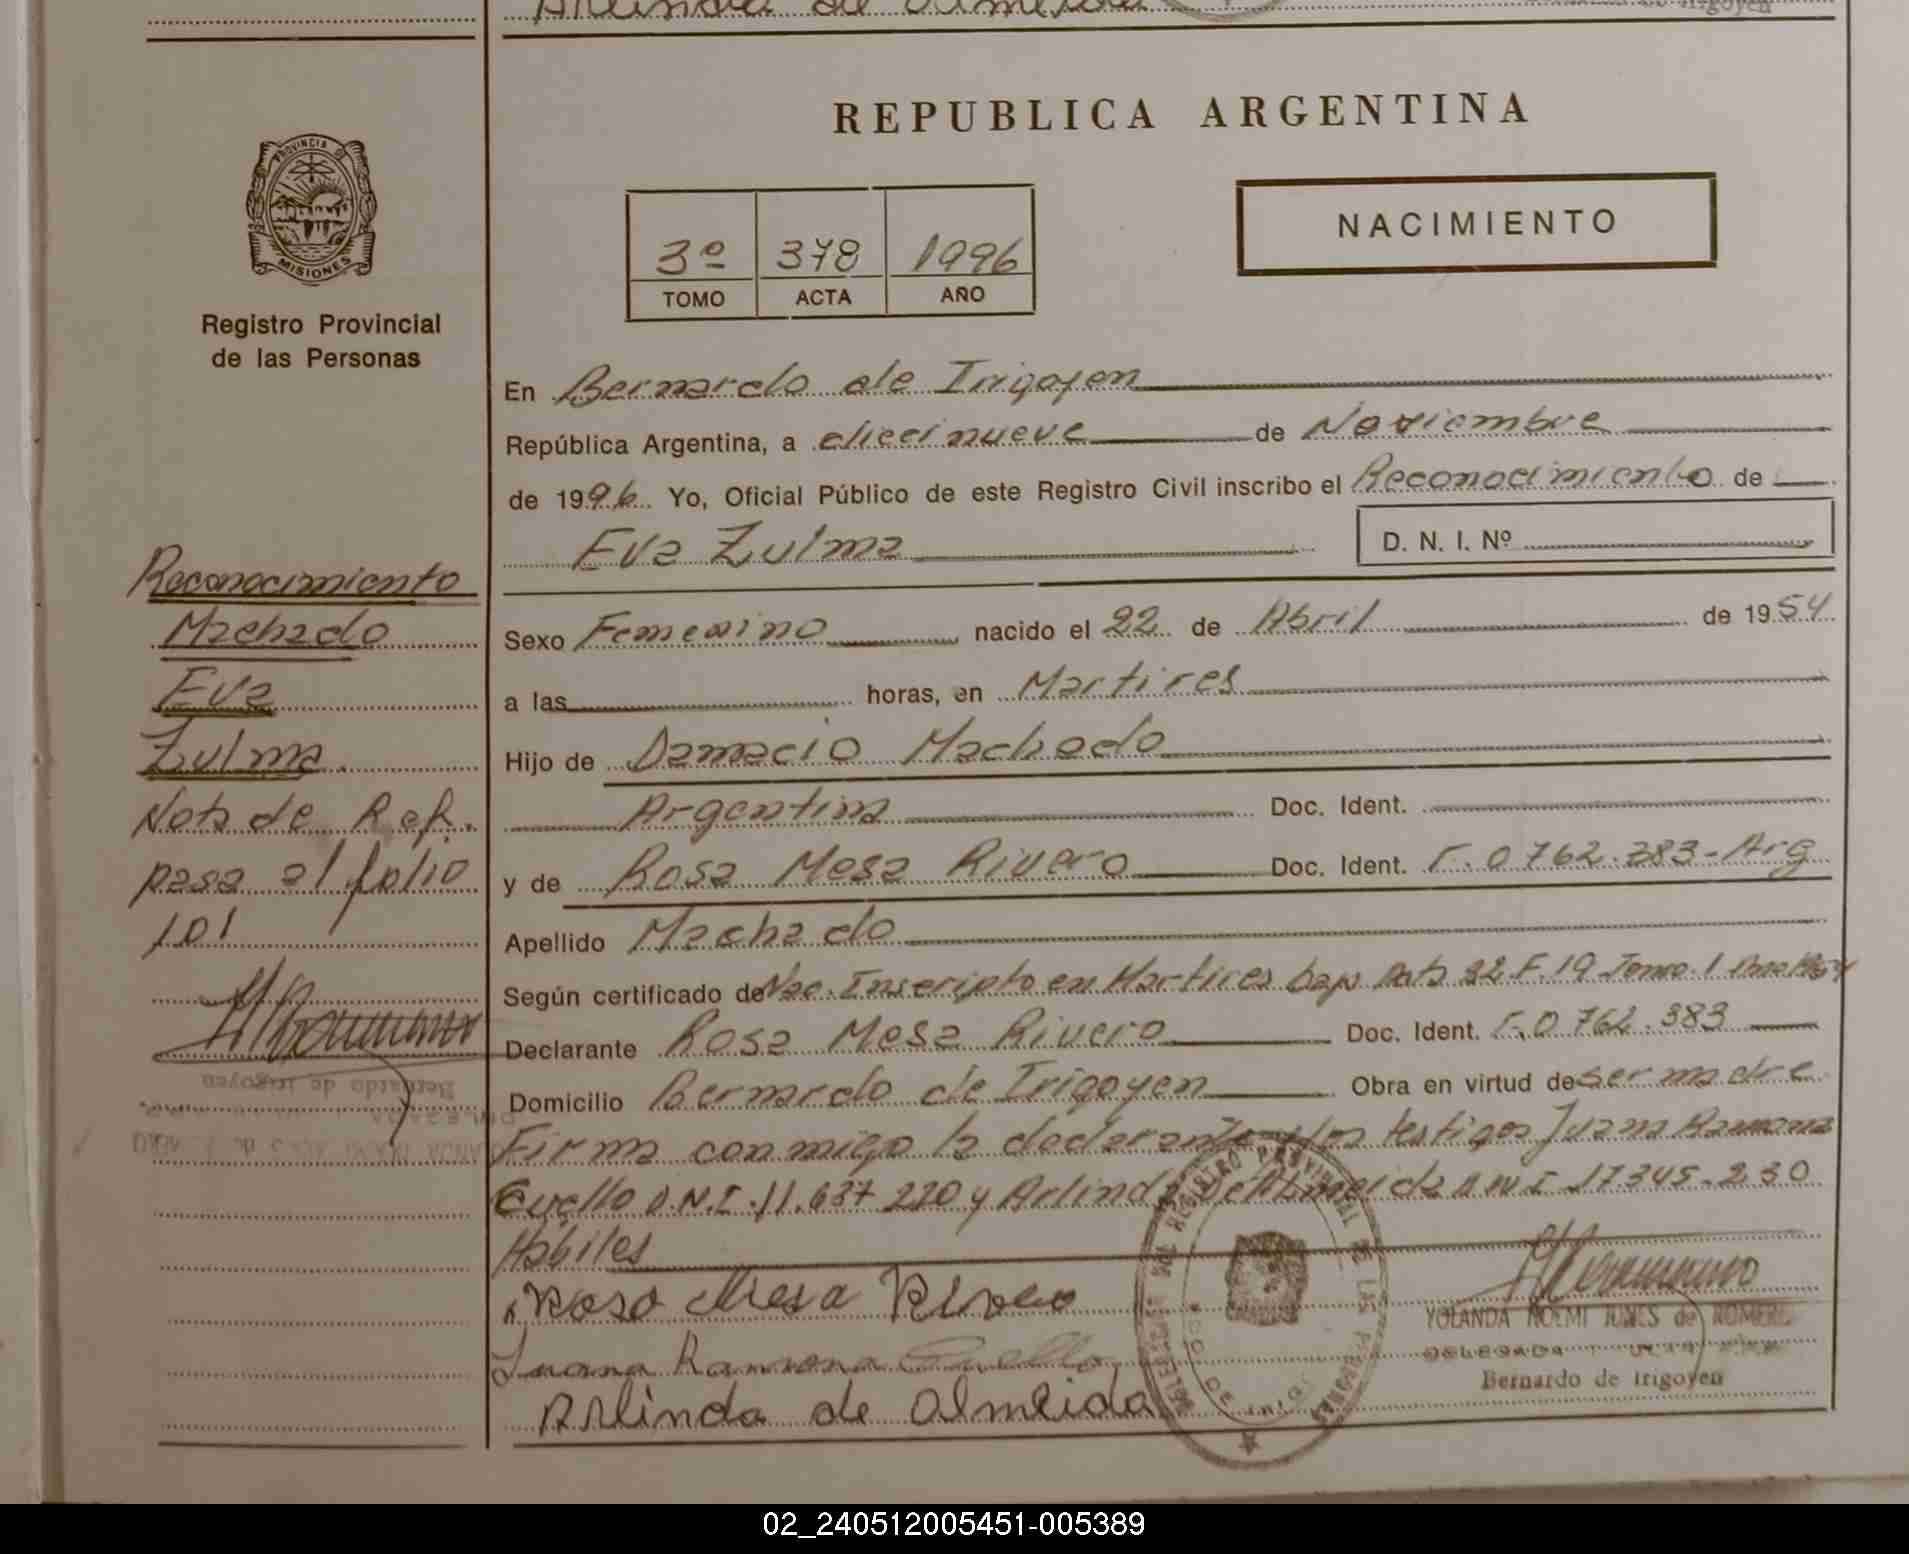 Arlinda de Almeida
Irigoyen
REPUBLICA ARGENTINA
PROVINCIA DE
MISIONES
Registro Provincial
de las Personas
3º 378 1996
TOMO ACTA AÑO
NACIMIENTO
En Bernardo de Irigoyen
República Argentina, a diecinueve de Noviembre
de 1996. Yo, Oficial Público de este Registro Civil inscribo el Reconocimiento de
Eva Zulma
D. N. I. Nº
Sexo Femenino nacido el 22 de Abril de 1954
a las horas, en Martires
Hijo de Damacio Machado
Argentina Doc. Ident.
y de Rosa Mesa Rivero Doc. Ident. F.0762.383-Arg
Apellido Machado
Según certificado de Nac. Inscripto en Martires bajo Acta 22 F.19 Tomo 1
Declarante Rosa Mesa Rivero Doc. Ident. F.0762.383
Domicilio Bernardo de Irigoyen Obra en virtud de ser madre
Firma conmigo la declarante y los testigos Juana Ramona
Cuello D.N.I. 11.637 220 y Arlinda de Almeida D.N.I. 17.345.230
Habiles
Rosa Mesa Rivero
Juana Ramona Cuello
Arlinda de Almeida
YOLANDA NOEMI de ROMERO
DELEGADA
Bernardo de Irigoyen
REGISTRO PROVINCIAL DE LAS PERSONAS
Reconocimiento
Machado
Eva
Zulma
Nota de Ref.
pasa al folio
101
Bernardo de Irigoyen
02_240512005451-005389